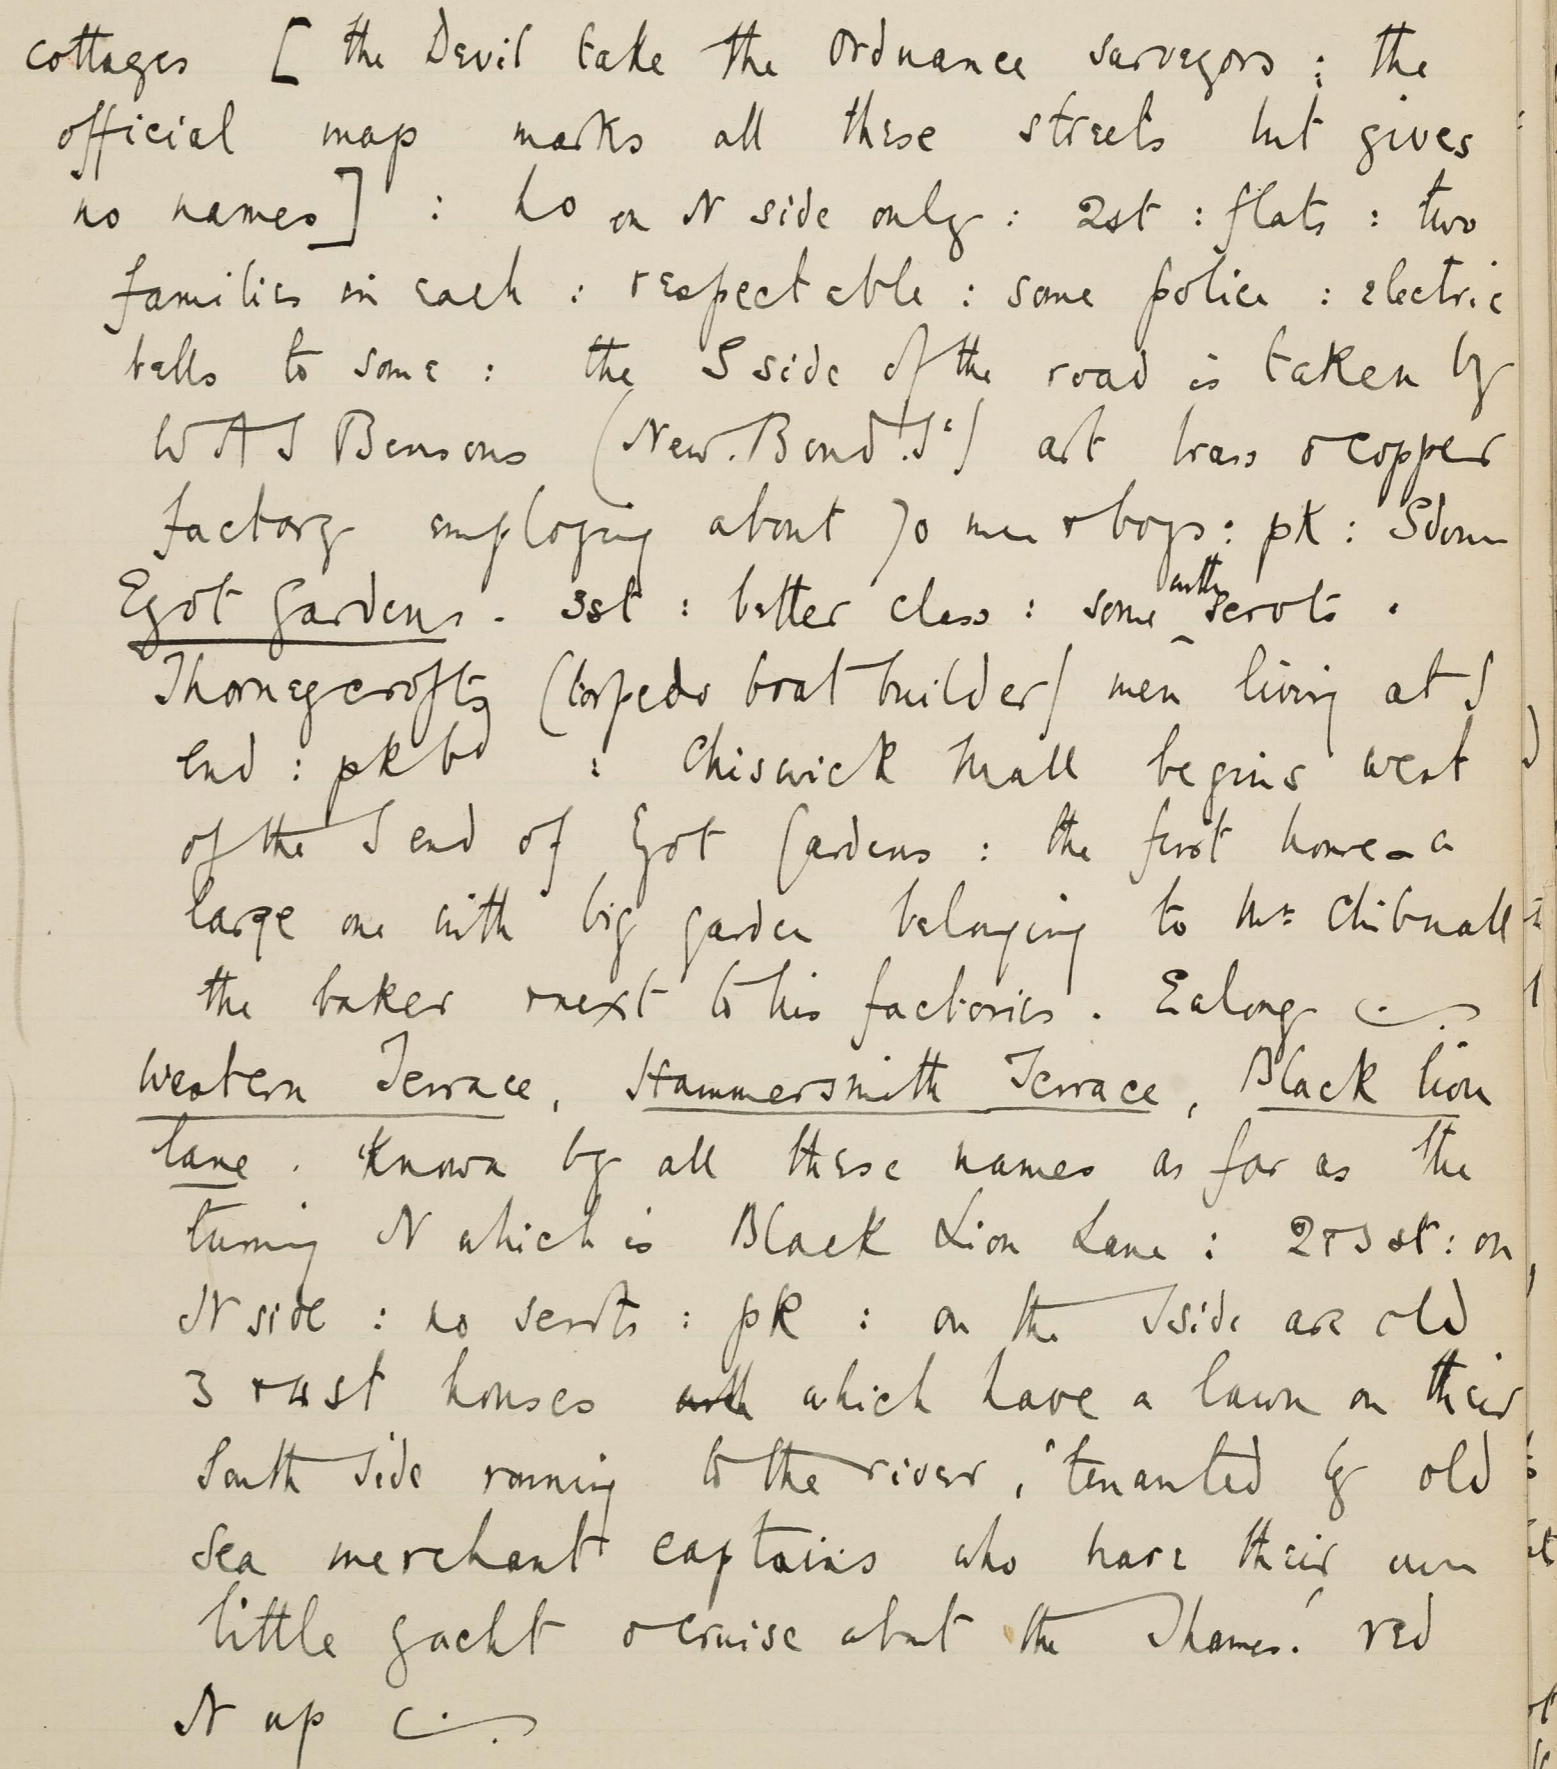 cottages [ the Devil take the Ordnance surveyors : the
official map marks all these streets but gives
no names] : ho on N side only : 2st : flats : two
families in each : respectable : some police : electric
bells to some : the S side of the road is taken by
W A S Bensons (New. Bond. St) art brass & copper
factory employing about 70 men & boys : pk : S down
Eyot Gardens . 3st : better class : some with servts .
Thorneycrofts (torpedo boat builder) men living at S
end : pk bd : Chiswick Mall begins west
of the S end of Eyot Gardens : the first house - a
large one with big garden belonging to Mr Chibnall
the baker & next to his factories . E along
Western Terrace, Hammersmith Terrace, Black Lion
Lane . Known by all these names as far as the
turning N which is Black Lion Lane : 2 & 3 st : on
N side : no servts : pk : on the S side are old
3 & 4 st houses with which have a lawn on their
South side running to the river, 'tenanted by old
sea merchant captains who have their own
little yacht & cruise about the Thames.' red
N up